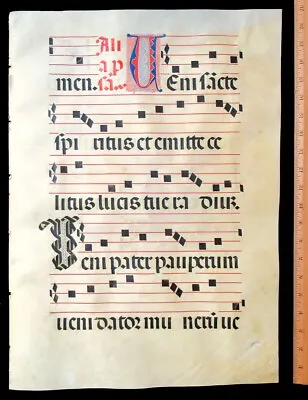 Ali
a p
men. sa... UEni sācte
spi ritus et emitte ce
litus lucis tue ra dium.
Veni pater pauperum
ueni dator mu nerū ue